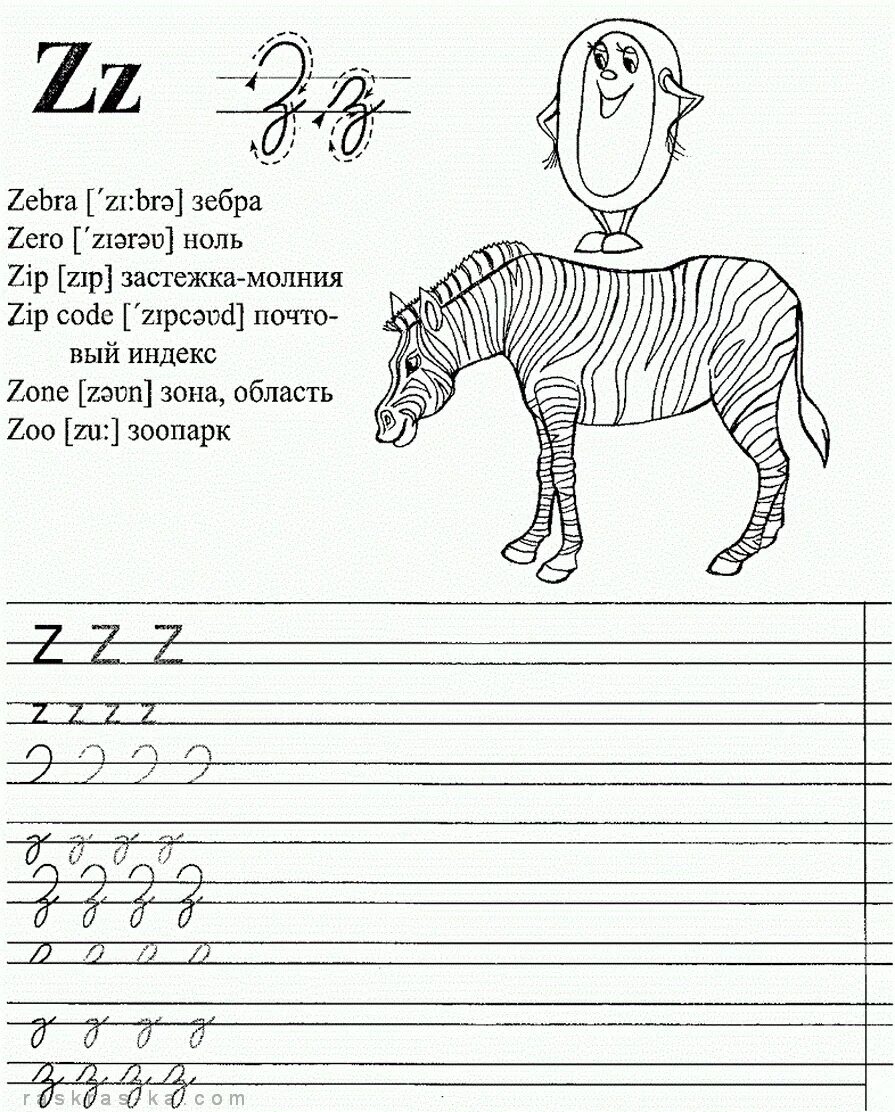 Zz Zz
Zebra [ˊzɪ:brə] зебра
Zero [ˊzɪərəʊ] ноль
Zip [zɪp] застежка-молния
Zip code [ˊzɪpcəʊd] почто-
вый индекс
Zone [zəʊn] зона, область
Zoo [zu:] зоопарк
Z Z Z
z z z z
Z Z Z Z
z z z z
raskraska.com